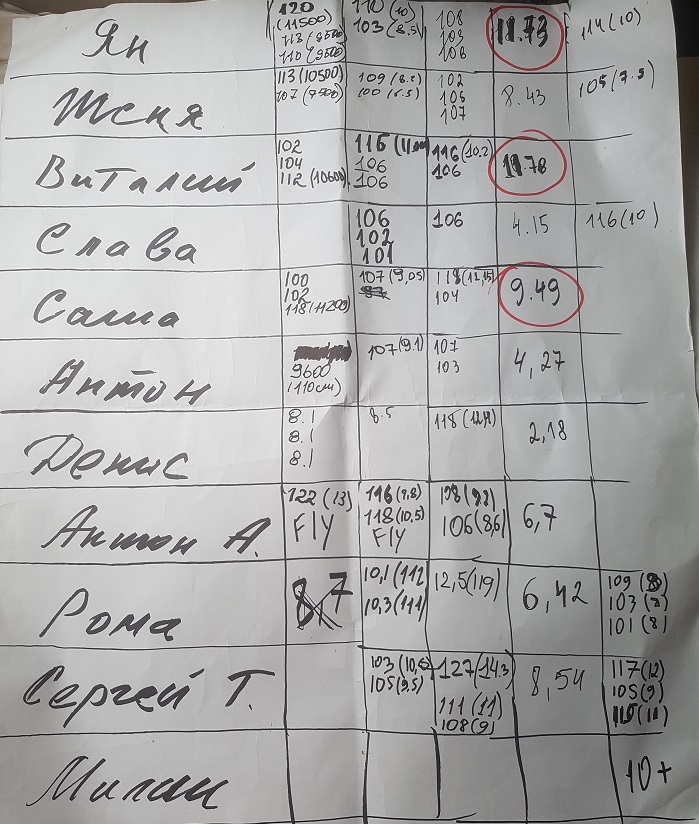 Ян
120
(11500)
113 (9500)
110 (9500)
110 (10)
103 (8.5)
108
103
106
114 (10)
Женя
113 (10500)
107 (7500)
109 (8.2)
100 (6.5)
102
105
107
8.43
105 (7.5)
Виталий
102
104
112 (10600)
116
106
106
116 (10,2)
106
11.78
Слава
106
102
101
106
4.15
116 (10)
Саша
100
102
118 (11200)
107 (9,05)
118 (12,15)
104
9.49
Антон
9600
(110см)
107 (9.1)
107
103
4,27
Денис
8.1
8.1
8.1
8.5
118
2,18
Антон А.
122 (13)
Fly
116 (9,8)
118 (10,5)
Fly
108 (9.2)
106 (8,6)
6,7
Рома
8,7
10,1 (112)
10,3 (111)
12,5 (119)
6,42
109 (8)
103 (8)
101 (8)
Сергей Т.
103
105 (9.5)
127 (14.3)
111 (11)
108 (9)
8,54
117 (12)
105 (9)
115 (11)
Милан
10+